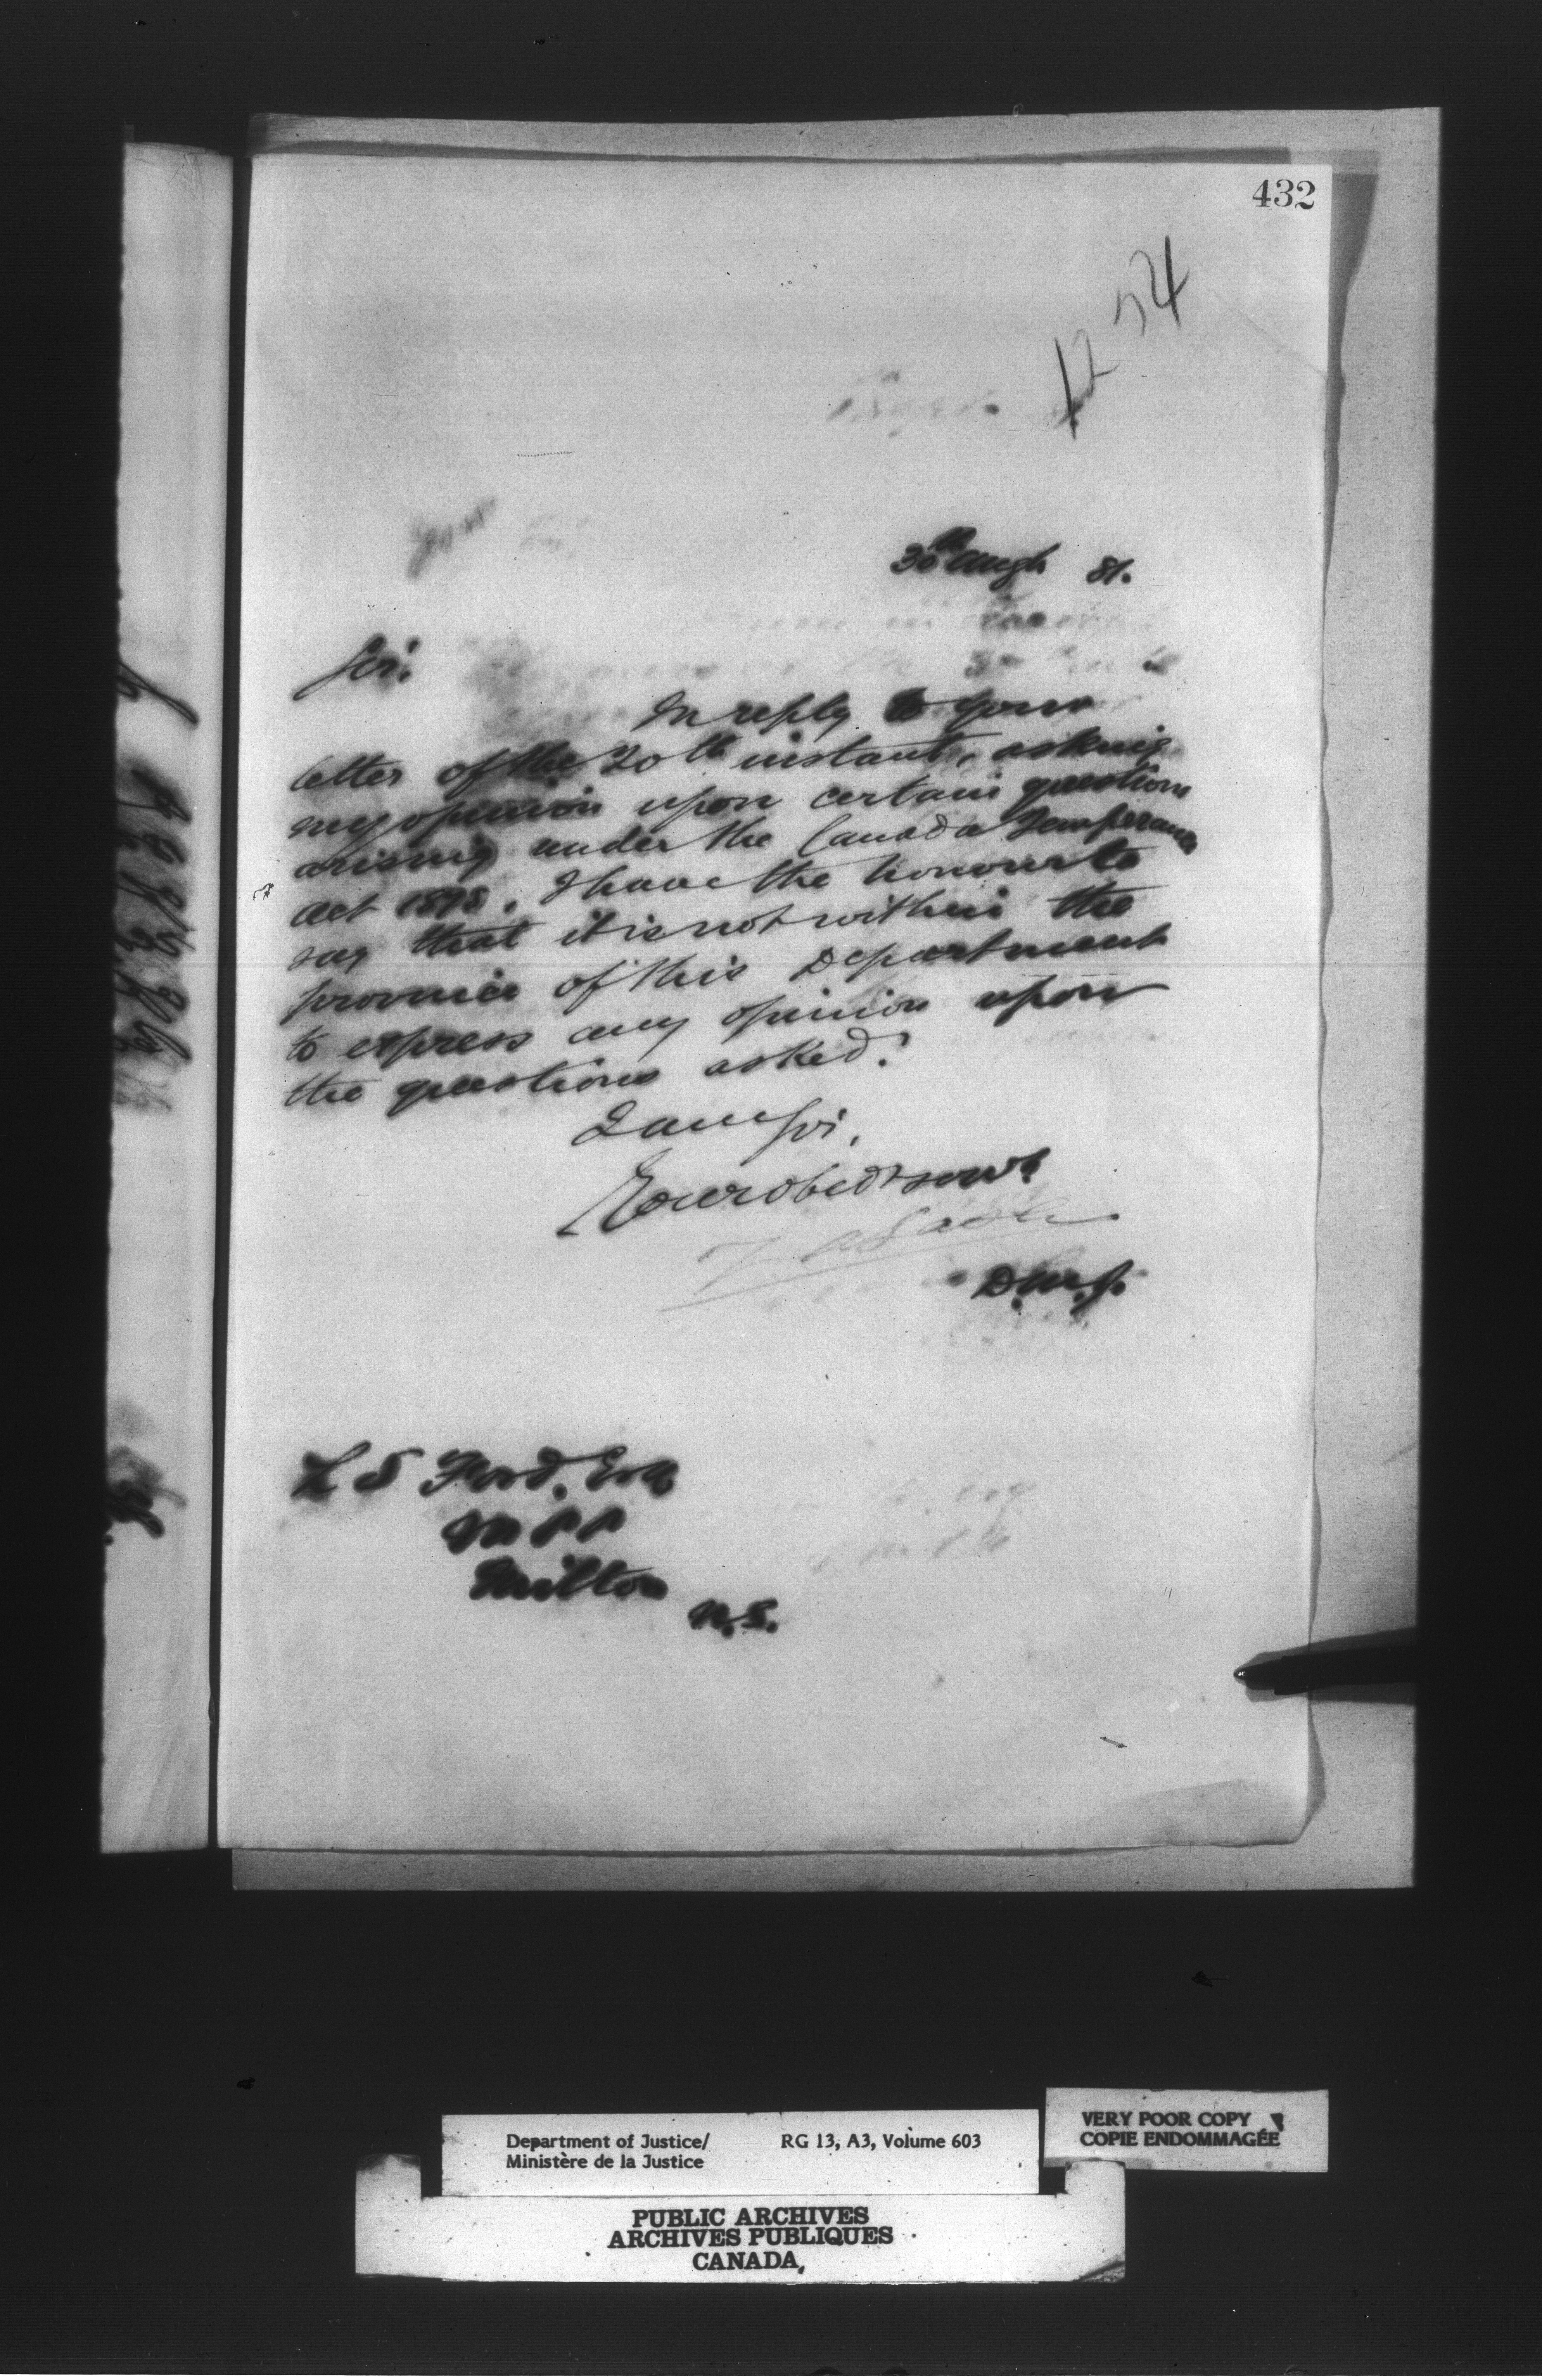 432
1254
30th Augt 81.
Sir:
In reply to your
letter of the 20th instant, asking
my opinion upon certain questions
arising under the Canada Temperance
Act 1878, I have the honour to
say that it is not within the
province of this Department
to express any opinion upon
the questions asked.
I am Sir,
Your obedt servt
Z A Lash
D.M.J.
L S Ford, Esq
MPP
Milton
N.S.
Department of Justice/
Ministère de la Justice
RG 13, A3, Volume 603
VERY POOR COPY
COPIE ENDOMMAGÉE
PUBLIC ARCHIVES
ARCHIVES PUBLIQUES
CANADA